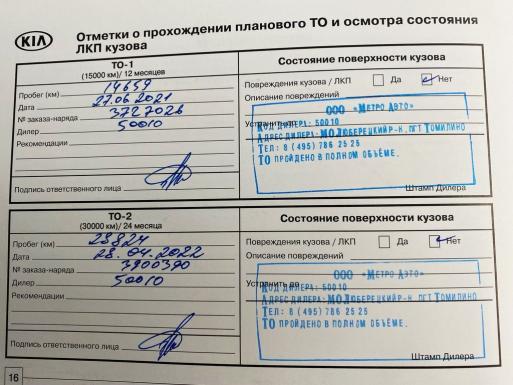 KIA
Отметки о прохождении планового ТО и осмотра состояния
ЛКП кузова
ТО-1
(15000 км)/ 12 месяцев
Пробег (км) 14659
Дата 27.06 2021
№ заказа-наряда 3727026
Дилер 50010
Рекомендации
Подпись ответственного лица
Состояние поверхности кузова
Повреждения кузова / ЛКП Да Нет
Описание повреждений
ООО «Метро Авто»
Устранить до
Код дилера: 50010
Адрес дилера: МО Люберецкий р-н, пгт Томилино
Тел: 8 (495) 786 25 25
ТО пройдено в полном объёме.
Штамп Дилера
ТО-2
(30000 км)/ 24 месяца
Пробег (км) 28824
Дата 28.04.2022
№ заказа-наряда 3900390
Дилер 50010
Рекомендации
Подпись ответственного лица
Состояние поверхности кузова
Повреждения кузова / ЛКП Да Нет
Описание повреждений
ООО «Метро Авто»
Устранить до
Код дилера: 50010
Адрес дилера: МО Люберецкий р-н, пгт Томилино
Тел: 8 (495) 786 25 25
ТО пройдено в полном объёме.
Штамп Дилера
16